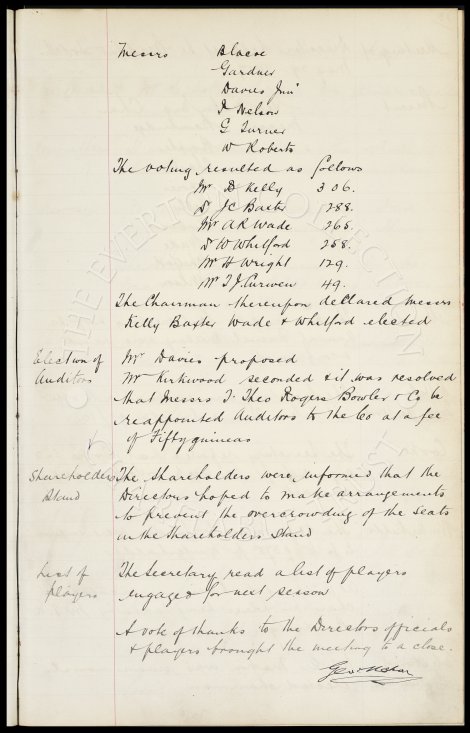 Messrs Blaese
Gardner
Davies Junr
T Nelson
G Turner
W Roberts
The voting resulted as follows
Mr D Kelly 306.
Dr J C Baxter 288.
Mr A R Wade 265.
Dr W Whitford 258.
Mr H Wright 129.
Mr T J Curwen 49.
The Chairman thereupon declared Messrs
Kelly Baxter Wade & Whitford elected
Election of Auditors
Mr Davies proposed
Mr Kirkwood seconded & it was resolved
that Messrs T. Theo Rogers Bowler & Co be
reappointed Auditors to the Co at a fee
of Fifty guineas
Shareholders Stand
The Shareholders were informed that the
Directors hoped to make arrangements
to prevent the overcrowding of the Seats
in the Shareholders Stand
List of players
The Secretary read a list of players
engaged for next season
A vote of thanks to the Directors officials
& players brought the meeting to a close.
THE EVERTON COLLECTION